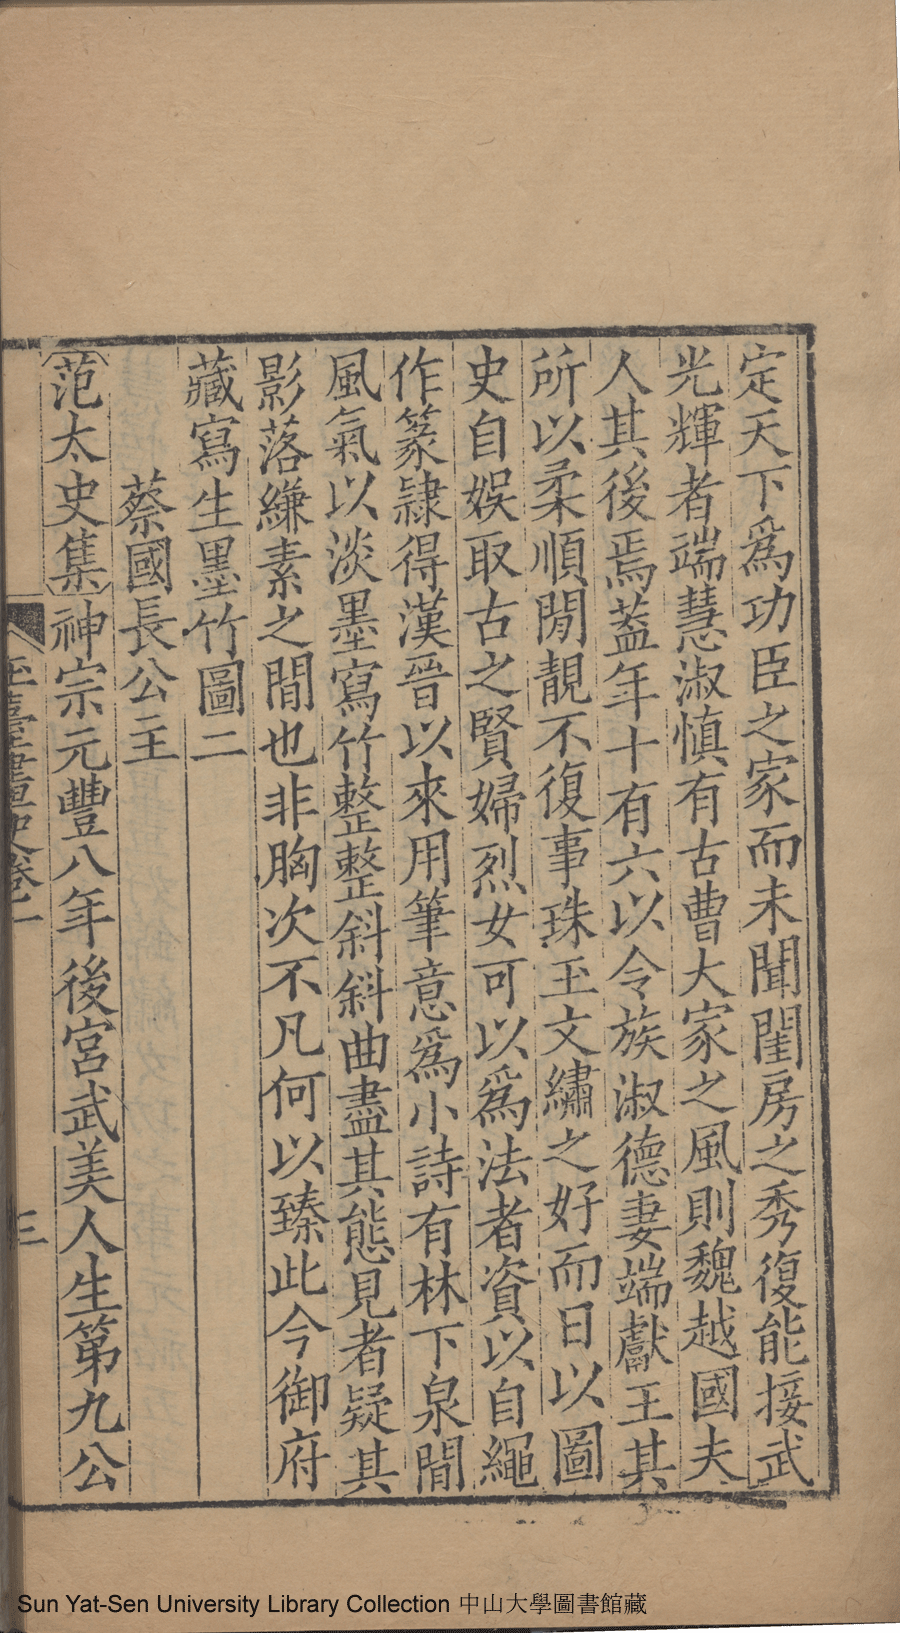 定天下爲功臣之家而未聞閨房之秀復能接武
光輝者端慧淑慎有古曹大家之風則魏越國夫
人其後焉葢年十有六以令族淑德妻端獻王其
所以柔順閒靚不復事珠玉文繡之好而日以圖
史自娛取古之賢婦烈女可以爲法者資以自繩
作篆隷得漢晉以來用筆意爲小詩有林下泉間
風氣以淡墨寫竹整整斜斜曲盡其態見者疑其
影落縑素之間也非胸次不凡何以臻此今御府
藏寫生墨竹圖二
蔡國長公主
范太史集神宗元豐八年後宮武美人生第九公
玉臺畫史卷一
三
Sun Yat-Sen University Library Collection 中山大學圖書館藏